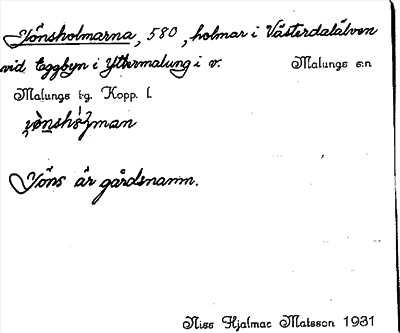 Jönsholmarna, 580, holmar i Västerdalälven
vid Eggbyn i Yttermalung i v. Malungs s:n
Malungs tg. Kopp. l.
Jöns är gårdsnamn.
Niss Hjalmar Matsson 1931